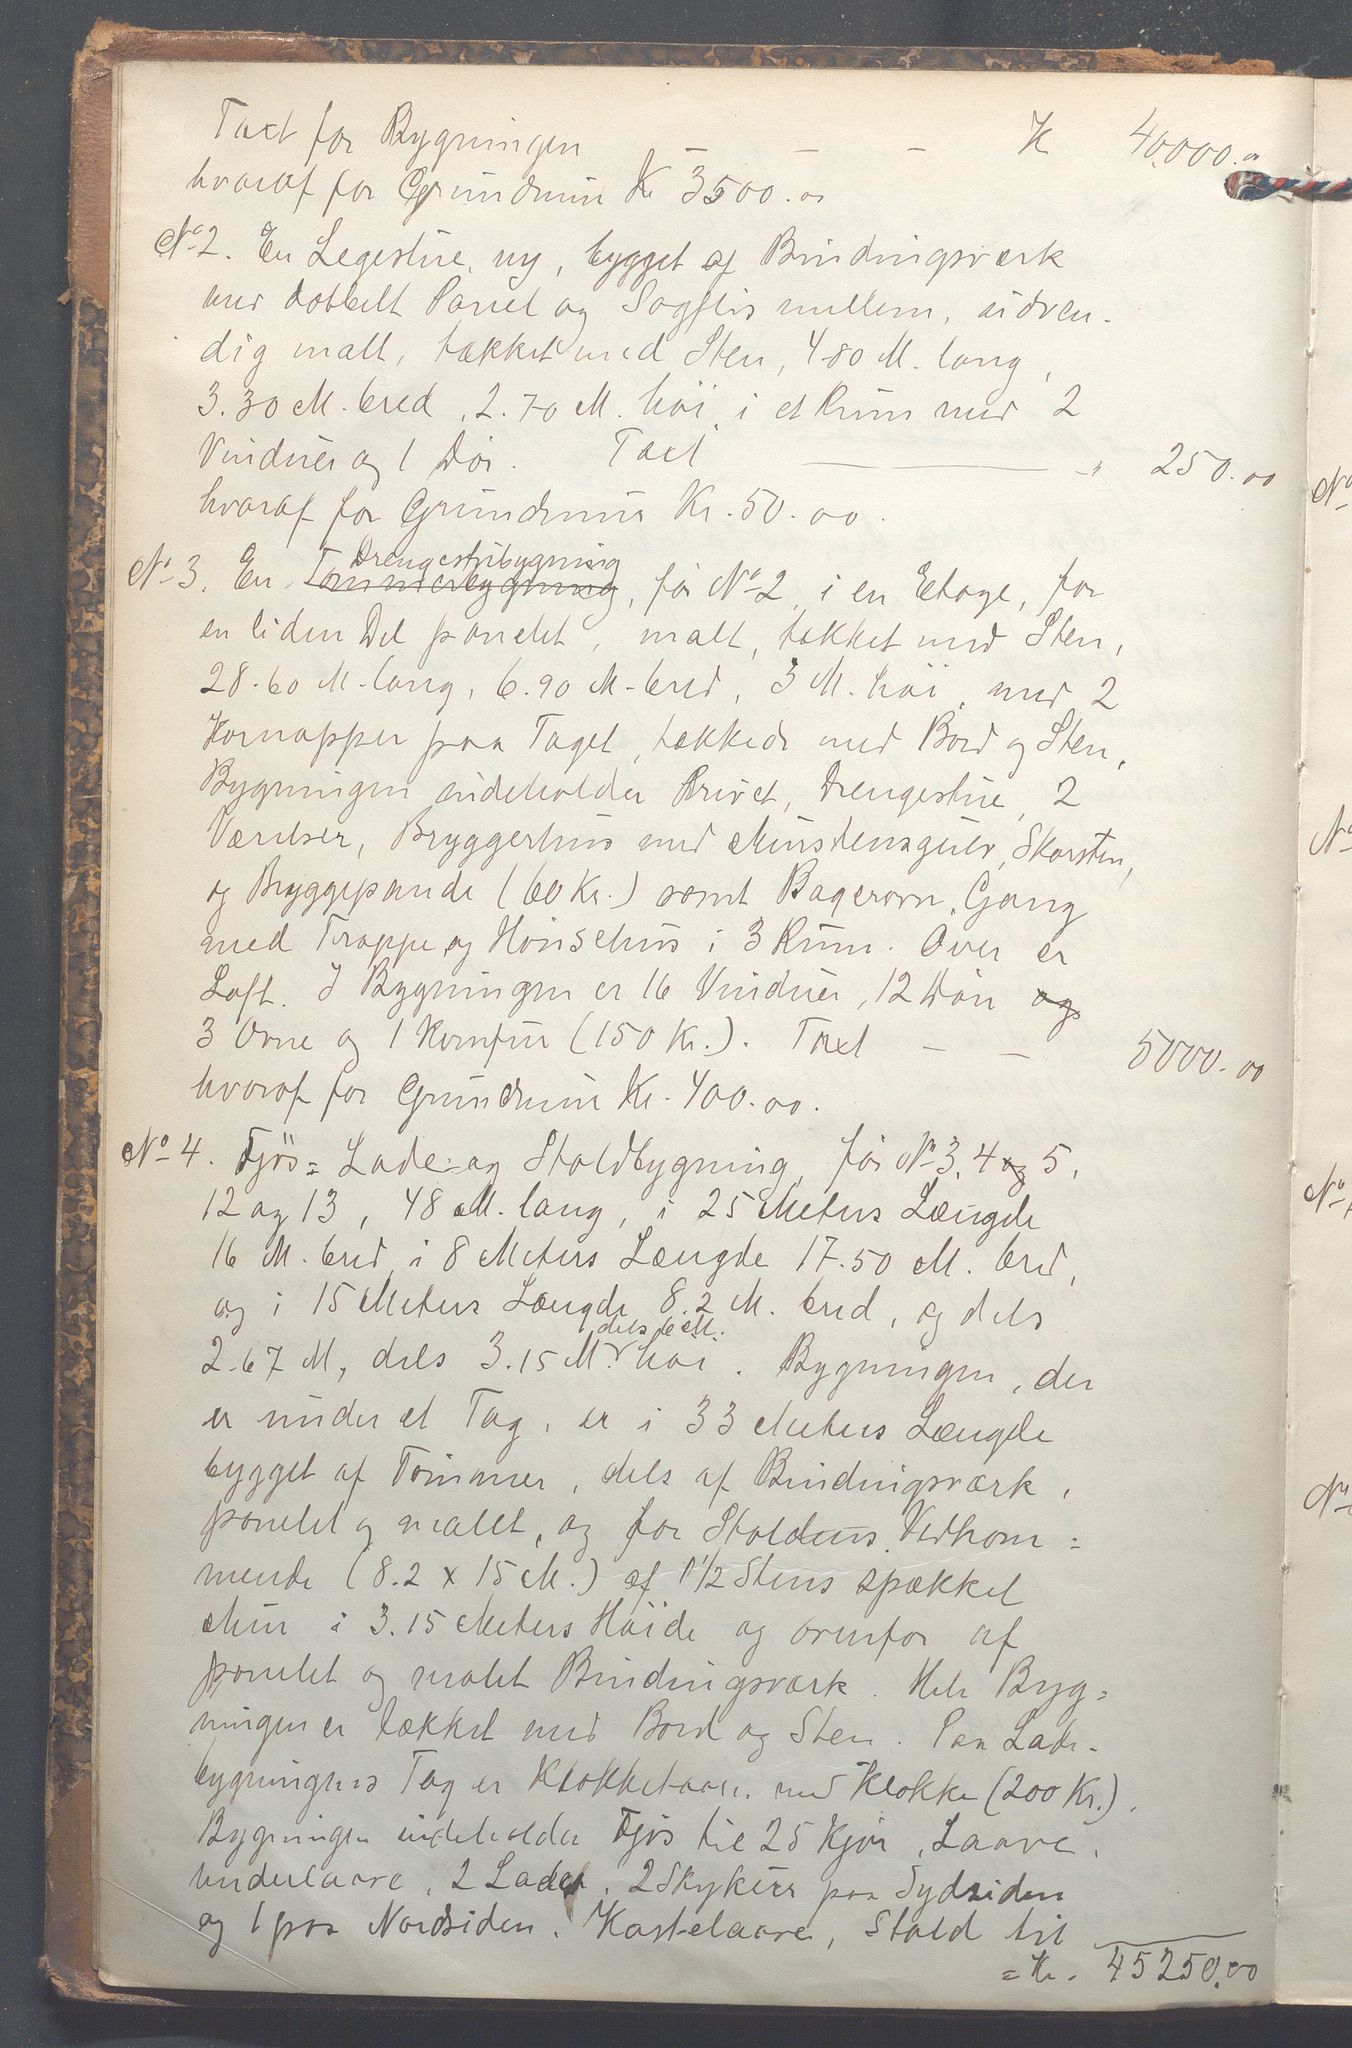 Taxt for Bygningen — — — K 40,000.00
hvoraf for Grundmur Kr 3500.00
No 2. En Legestue, ny, bygget af Bindingsværk
med dobbelt Panel og Sagflis mellem, udven-
dig malt, tækket med Sten, 4.80 M. lang,
3.30 M. bred, 2.70 M. høi, i et Rum med 2
Vinduer og 1 Dør. Taxt — — " 250.00
hvoraf for Grundmur Kr. 50.00.
Drengestubygning
No 3. En Tømmerbygning, før No 2, i en Etage, for
en liden Del panelet, malt, tækket med Sten,
28.60 M. lang, 6.90 M. bred, 3 M. høi, med 2
Kornapper paa Taget, tækkede med Bord og Sten,
Bygningen indeholder Privet, Drengestue, 2
Værelser, Bryggerhus med Murstensgulv, Skorsten,
og Bryggepande (60 Kr.) samt Bagerovn, Gang
med Trappe og Hønsehus i 3 Rum. Over er
Loft. I Bygningen er 16 Vinduer, 12 Døre og
3 Ovne og 1 Komfur (150 Kr.). Taxt — — 5000.00
hvoraf for Grundmur Kr. 400.00.
No 4. Fjøs= Lade og Staldbygning, før No 3, 4 og 5,
12 og 13, 48 M. lang, i 25 Meters Længde
16 M. bred, i 8 Meters Længde 17.50 M. bred,
og i 15 Meters Længde 8.2 M. bred, og dels
dels 6 M.
2.67 M, dels 3.15 M. høi. Bygningen, der
er under et Tag, er i 33 Meters Længde
bygget af Tømmer, dels af Bindingsværk,
panelet og malet, og for Staldens Vedkom=
mende (8.2 x 15 M.) af 1 1/2 Stens spækket
Mur i 3.15 Meters Høide og ovenfor af
panelet og malet Bindingsværk. Hele Byg=
ningen er tækket med Bord og Sten. Paa Lade-
bygningens Tag er Klokketaarn med Klokke (200 Kr.).
Bygningen indeholder Fjøs til 25 Kjør, Laave,
Underlaave, 2 Lader, 2 Skykjør paa Sydsiden
og 1 paa Nordsiden, Kastelaave, Stald til
= Kr. 45250.00
No
No
No
No